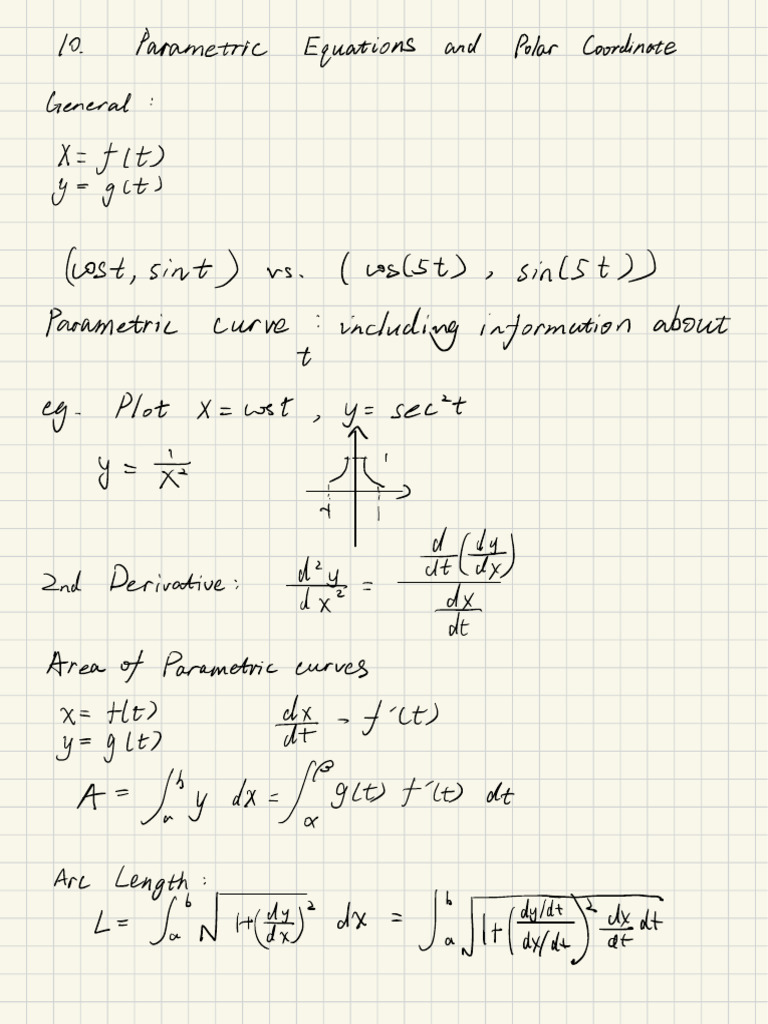 10. Parametric Equations and Polar Coordinate
General :
x = f(t)
y = g(t)
(cost, sint) vs. (cos(5t), sin(5t))
Parametric curve : including information about
t
eg. Plot x = cost, y = sec²t
y = 1/x²
1
-1 1
2nd Derivative: d²y/dx² = (d/dt(dy/dx))/(dx/dt)
Area of Parametric curves
x = f(t) dx/dt = f'(t)
y = g(t)
A = ∫ₐᵇ y dx = ∫_α^β g(t) f'(t) dt
Arc Length :
L = ∫ₐᵇ √(1+(dy/dx)²) dx = ∫ₐᵇ √(1+((dy/dt)/(dx/dt))² dx/dt dt)